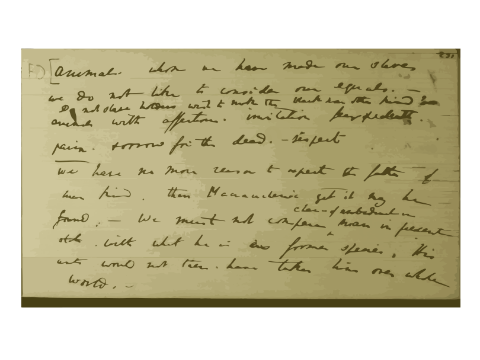 Animals whom we have made our slaves
we do not like to consider our equals. —
Do not slave holders wish to make the black man other kind?
animals with affections, imitation, fear of death.
pain. sorrow for the dead. — respect
we have no more reason to expect the father of
man kind. than Macrauchenia yet it may be
found. — We must not compare
chaos of
man in present
state. with what he is former species. His
arts would not then have taken him over whole
world. —